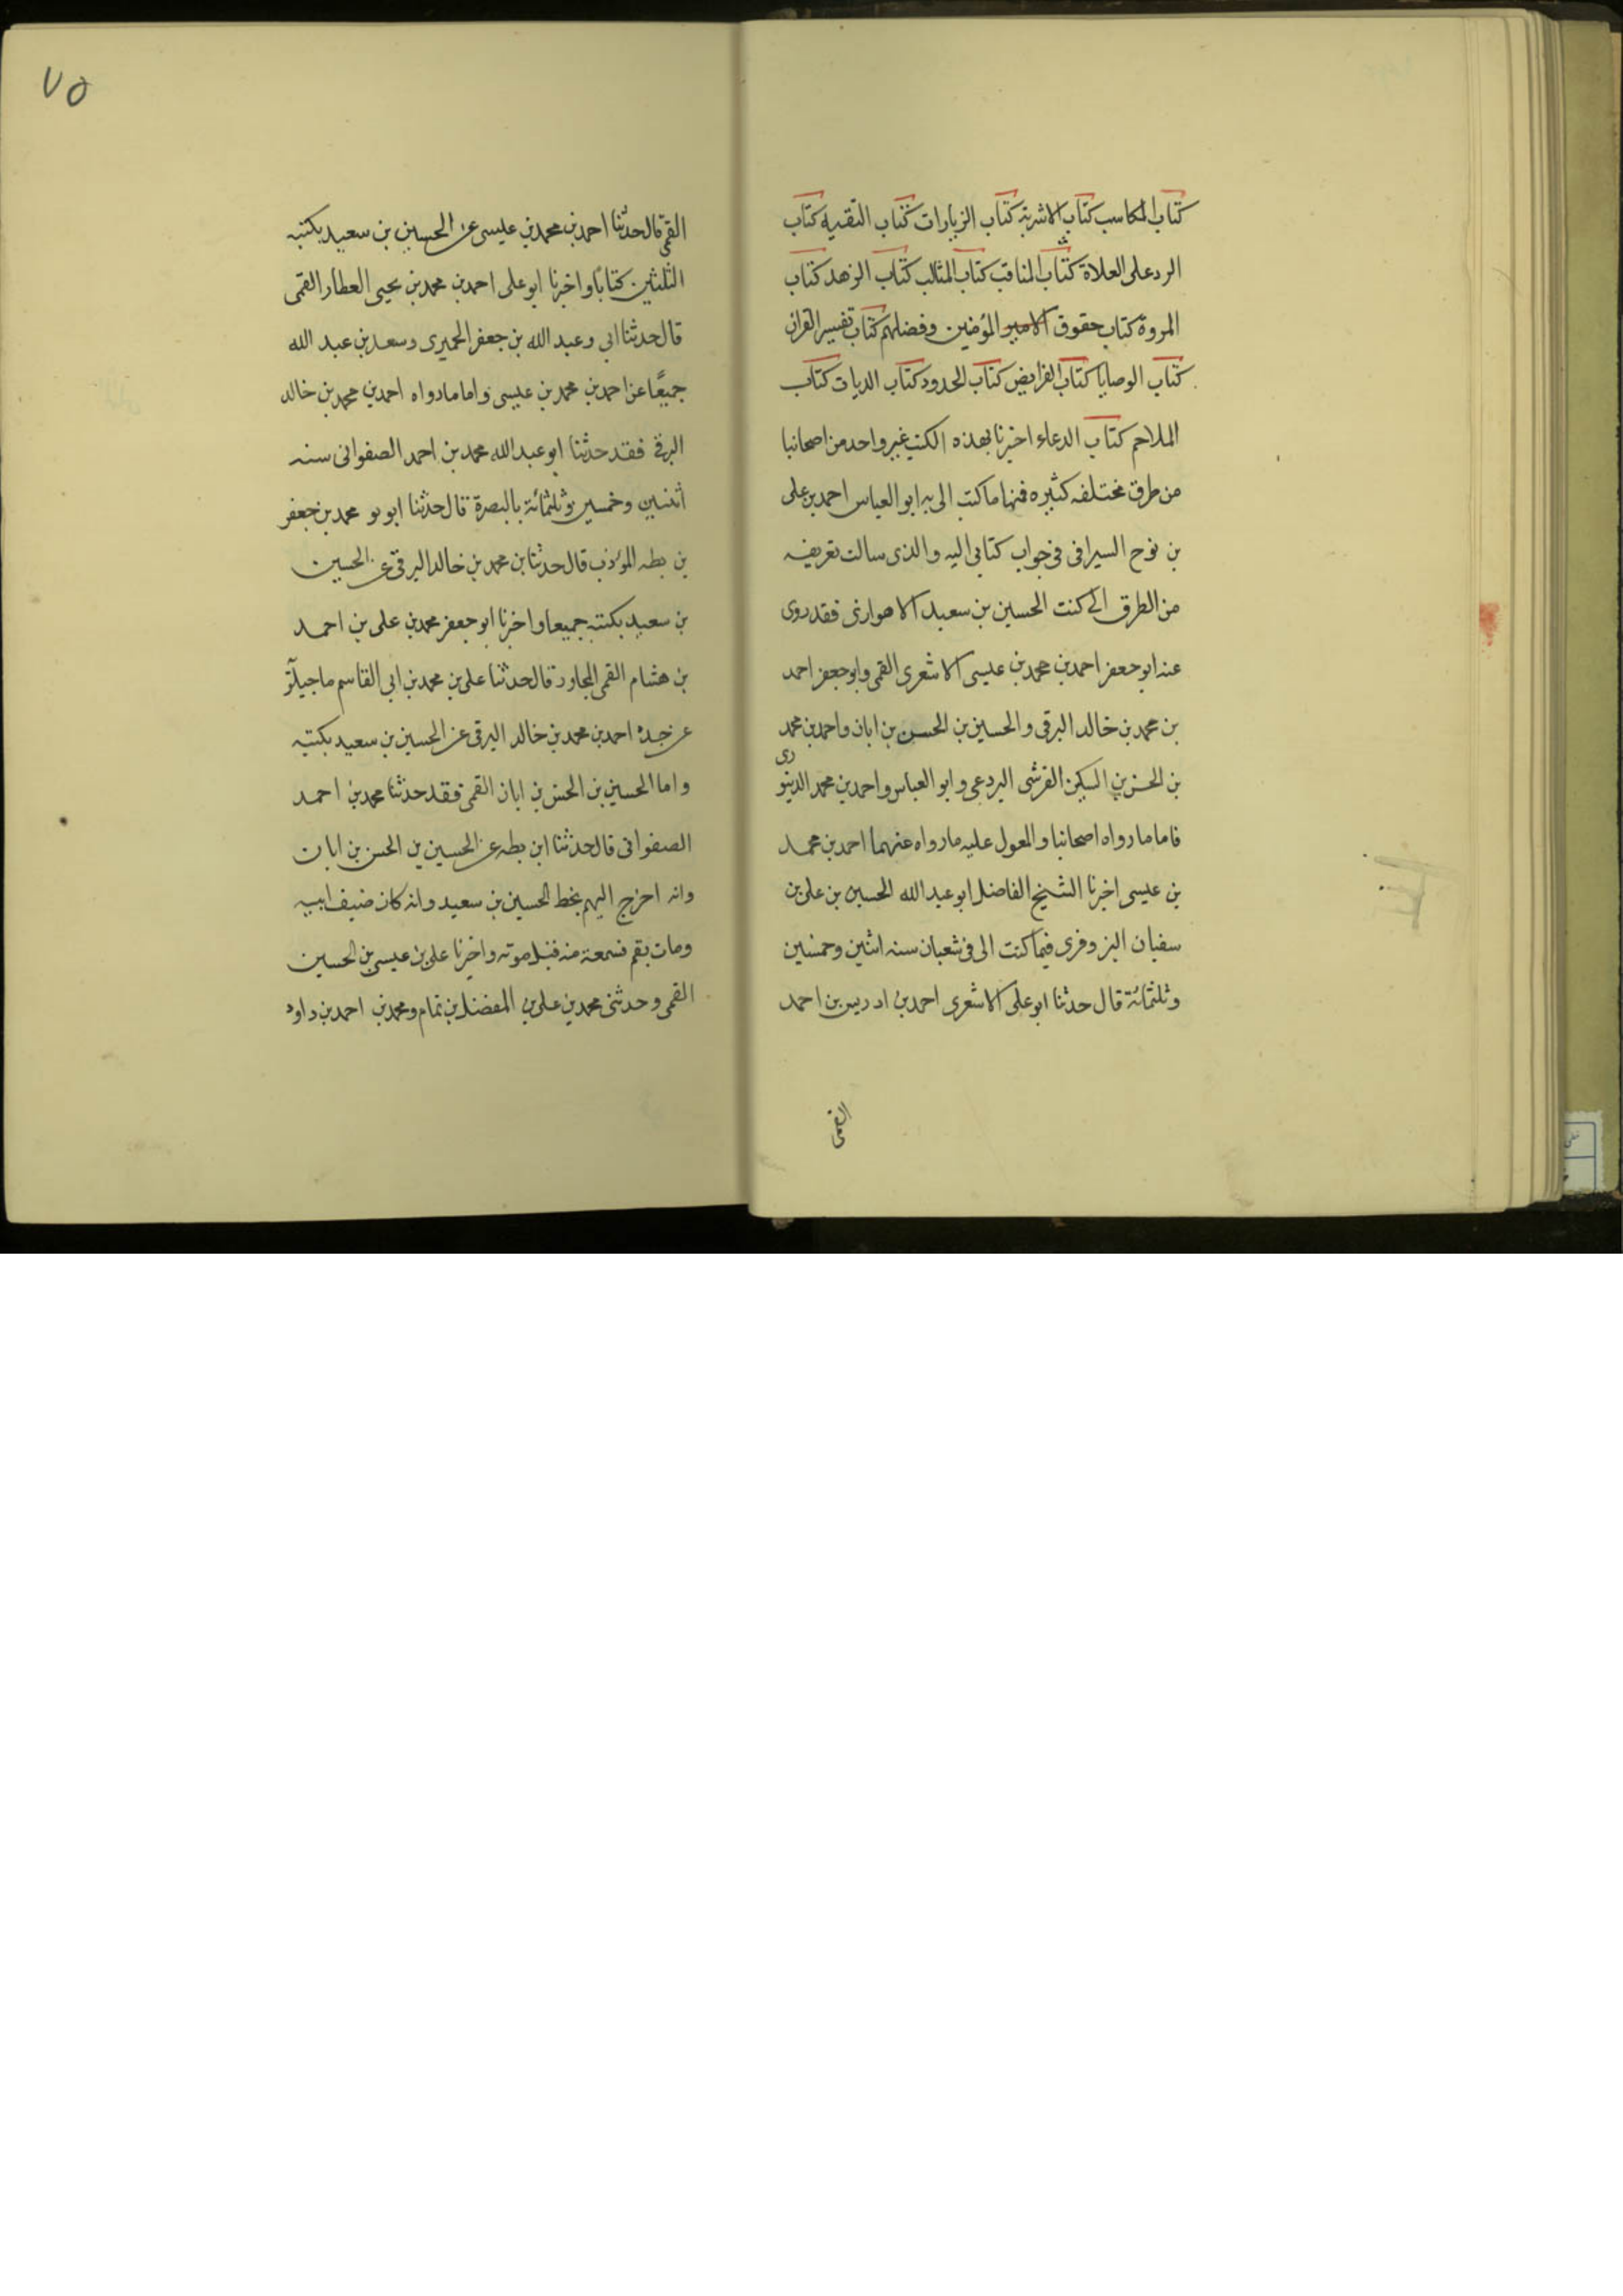 كتاب المكاسب كتاب الاشربة كتاب الزيارات كتاب التقيه كتاب
الرد على الغلاة كتاب المناقب كتاب المثالب كتاب الزهد كتاب
المروة كتاب حقوق المؤمنين وفضلهم كتاب تفسير القران
كتاب الوصايا كتاب الفرايض كتاب الحدود كتاب الديات كتاب
الملاحم كتاب الدعاء اخبرنا بهذه الكتب غير واحد من اصحابنا
من طرق مختلفه كثيره فمنها ما كتب الى به ابو العباس احمد بن على
بن نوح السيرافى فى جواب كتابى اليه والذى سالت تعريفه
من الطرق الى كتب الحسين بن سعيد الاهوازى فقد روى
عنه ابو جعفر احمد بن محمد بن عيسى الاشعرى القمى وابو جعفر احمد
بن محمد بن خالد البرقى والحسين بن الحسن بن ابان واحمد بن محمد
بن الحسن بن السكن القرشى البردعى وابو العباس واحمد بن محمد الدينورى
فاما ما رواه اصحابنا والمعول عليه ما رواه عنهما احمد بن محمد
بن عيسى اخبرنا الشيخ الفاضل ابو عبد الله الحسين بن على بن
سفيان البزوفرى فيما كتب الى فى شعبان سنه اثنين وخمسين
وثلثمائة قال حدثنا ابو على الاشعرى احمد بن ادريس بن احمد
القمى
٧٥
القمى قال حدثنا احمد بن محمد بن عيسى عن الحسين بن سعيد بكتبه
الثلثين كتابًا واخبرنا ابو على احمد بن محمد بن يحيى العطار القمى
قال حدثنا ابى وعبد الله بن جعفر الحميرى وسعد بن عبد الله
جميعًا عن احمد بن محمد بن عيسى واما ما رواه احمد بن محمد بن خالد
البرقى فقد حدثنا ابو عبد الله محمد بن احمد الصفوانى سنه
اثنين وخمسين وثلثمائة بالبصرة قال حدثنا ابو محمد بن جعفر
بن بطه المؤدب قال حدثنا بن محمد بن خالد البرقى عن الحسين
بن سعيد بكتبه جميعا واخبرنا ابو جعفر محمد بن على بن احمد
بن هشام القمى المجاور قال حدثنا على بن محمد بن ابى القاسم ماجيلويه
عن جده احمد بن محمد بن خالد البرقى عن الحسين بن سعيد بكتبه
واما الحسين بن الحسن بن ابان القمى فقد حدثنا محمد بن احمد
الصفوانى قال حدثنا ابن بطه عن الحسين بن الحسن بن ابان
وانه اخرج اليهم بخط الحسين بن سعيد وانه كان ضيف ابيه
ومات بقم فسمعته منه قبل موته واخبرنا على بن عيسى بن الحسين
القمى وحدثنى محمد بن على بن المفضل بن تمام ومحمد بن احمد بن داود